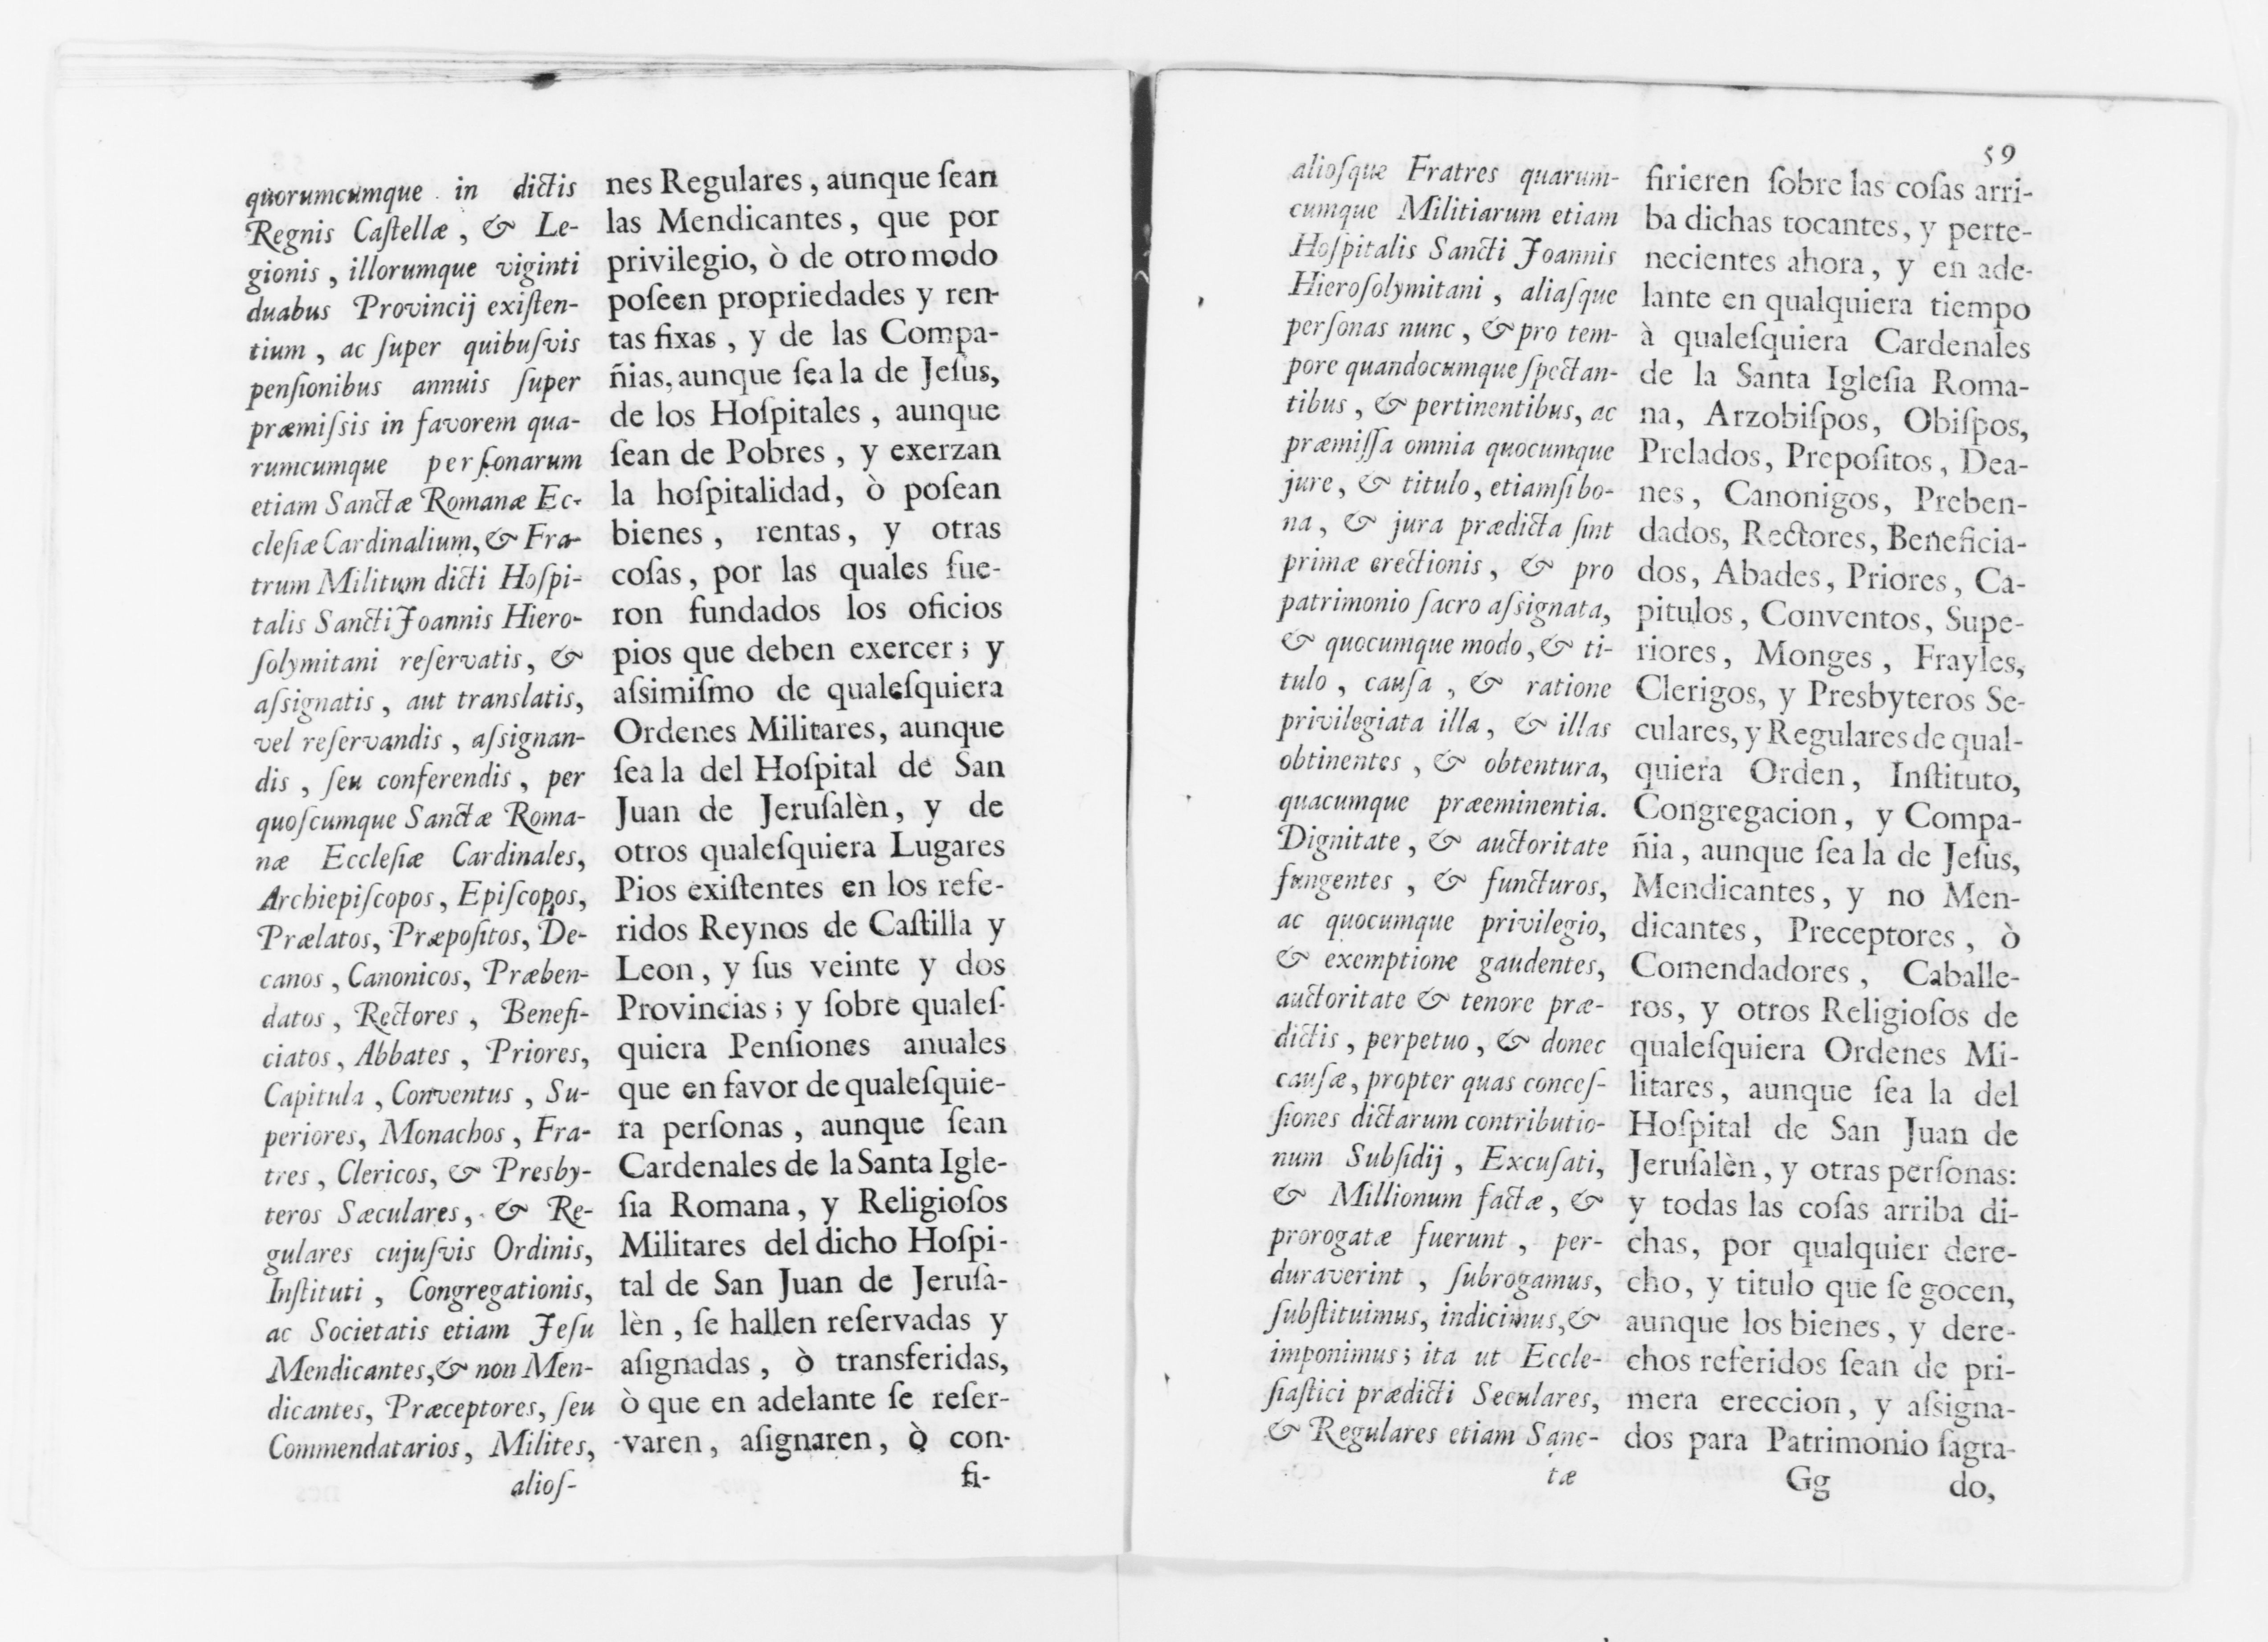 quorumcumque in dictis
Regnis Caſtellæ, & Le-
gionis, illorumque viginti
duabus Provincij exiſten-
tium, ac ſuper quibuſvis
penſionibus annuis ſuper
præmiſsis in favorem qua-
rumcumque perſonarum
etiam Sanctæ Romanæ Ec-
cleſiæ Cardinalium, & Fra-
trum Militum dicti Hoſpi-
talis Sancti Joannis Hiero-
ſolymitani reſervatis, &
aſsignatis, aut translatis,
vel reſervandis, aſsignan-
dis, ſeu conferendis, per
quoſcumque Sanctæ Roma-
næ Eccleſiæ Cardinales,
Archiepiſcopos, Epiſcopos,
Prælatos, Præpoſitos, De-
canos, Canonicos, Præben-
datos, Rectores, Benefi-
ciatos, Abbates, Priores,
Capitula, Conventus, Su-
periores, Monachos, Fra-
tres, Clericos, & Presby-
teros Sæculares, & Re-
gulares cujuſvis Ordinis,
Inſtituti, Congregationis,
ac Societatis etiam Jeſu
Mendicantes, & non Men-
dicantes, Præceptores, ſeu
Commendatarios, Milites,
alioſ-
nes Regulares, aunque ſean
las Mendicantes, que por
privilegio, ò de otro modo
poſeen propriedades y ren-
tas fixas, y de las Compa-
ñias, aunque ſea la de Jeſus,
de los Hoſpitales, aunque
ſean de Pobres, y exerzan
la hoſpitalidad, ò poſean
bienes, rentas, y otras
coſas, por las quales fue-
ron fundados los oficios
pios que deben exercer; y
aſsimiſmo de qualeſquiera
Ordenes Militares, aunque
ſea la del Hoſpital de San
Juan de Jeruſalèn, y de
otros qualeſquiera Lugares
Pios exiſtentes en los refe-
ridos Reynos de Caſtilla y
Leon, y ſus veinte y dos
Provincias; y ſobre qualeſ-
quiera Penſiones anuales
que en favor de qualeſquie-
ra perſonas, aunque ſean
Cardenales de la Santa Igle-
ſia Romana, y Religioſos
Militares del dicho Hoſpi-
tal de San Juan de Jeruſa-
lèn, ſe hallen reſervadas y
aſignadas, ò transferidas,
ò que en adelante ſe reſer-
varen, aſignaren, ò con-
fi-
59
alioſque Fratres quarum-
cumque Militiarum etiam
Hoſpitalis Sancti Joannis
Hieroſolymitani, aliaſque
perſonas nunc, & pro tem-
pore quandocumque ſpectan-
tibus, & pertinentibus, ac
præmiſſa omnia quocumque
jure, & titulo, etiamſi bo-
na, & jura prædicta ſint
primæ erectionis, & pro
patrimonio ſacro aſsignata,
& quocumque modo, & ti-
tulo, cauſa, & ratione
privilegiata illa, & illas
obtinentes, & obtentura,
quacumque præeminentia.
Dignitate, & auctoritate
fungentes, & functuros,
ac quocumque privilegio,
& exemptione gaudentes,
auctoritate & tenore præ-
dictis, perpetuo, & donec
cauſæ, propter quas conceſ-
ſiones dictarum contributio-
num Subſidij, Excuſati,
& Millionum factæ, &
prorogatæ fuerunt, per-
duraverint, ſubrogamus,
ſubſtituimus, indicimus, &
imponimus; ita ut Eccle-
ſiaſtici prædicti Seculares,
& Regulares etiam Sanc-
tæ
firieren ſobre las coſas arri-
ba dichas tocantes, y perte-
necientes ahora, y en ade-
lante en qualquiera tiempo
à qualeſquiera Cardenales
de la Santa Igleſia Roma-
na, Arzobiſpos, Obiſpos,
Prelados, Prepoſitos, Dea-
nes, Canonigos, Preben-
dados, Rectores, Beneficia-
dos, Abades, Priores, Ca-
pitulos, Conventos, Supe-
riores, Monges, Frayles,
Clerigos, y Presbyteros Se-
culares, y Regulares de qual-
quiera Orden, Inſtituto,
Congregacion, y Compa-
ñia, aunque ſea la de Jeſus,
Mendicantes, y no Men-
dicantes, Preceptores, ò
Comendadores, Caballe-
ros, y otros Religioſos de
qualeſquiera Ordenes Mi-
litares, aunque ſea la del
Hoſpital de San Juan de
Jeruſalèn, y otras perſonas:
y todas las coſas arriba di-
chas, por qualquier dere-
cho, y titulo que ſe gocen,
aunque los bienes, y dere-
chos referidos ſean de pri-
mera ereccion, y aſsigna-
dos para Patrimonio ſagra-
Gg do,